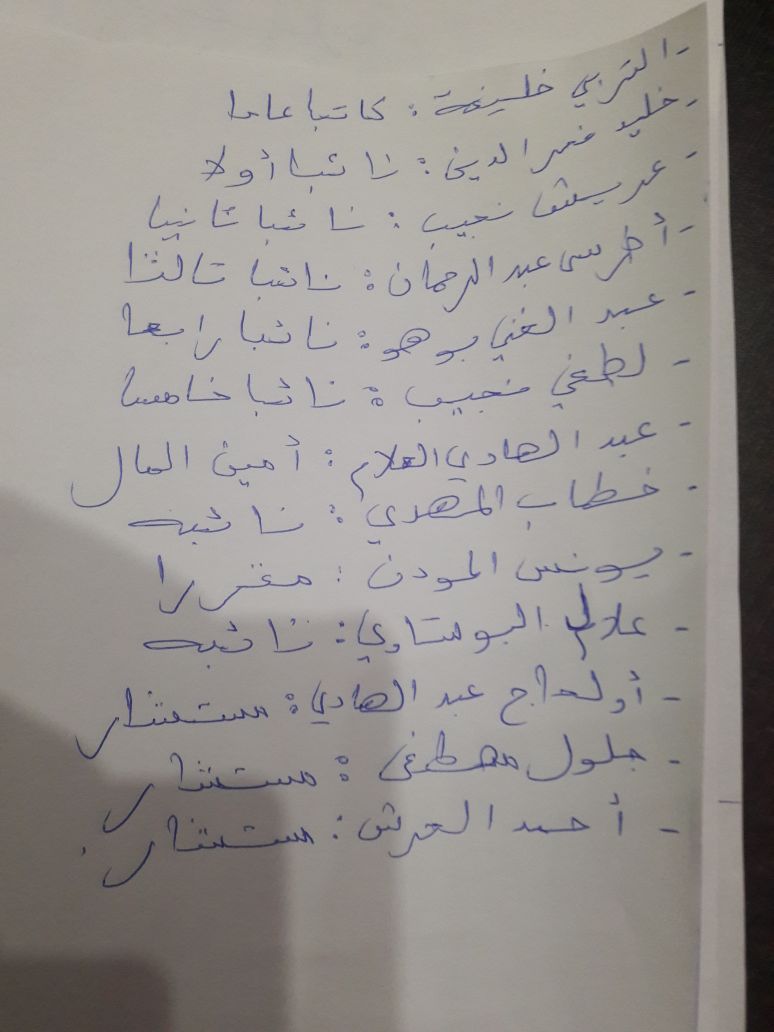 - التربي خليفة : كاتبا عاما
- خليد نصر الدين : نائبا أولا
- نجيب : نائبا ثانيا
- عبد الرحمان : نائبا ثالثا
- عبد الغني بوهو : نائبا رابعا
- لطفي نجيب : نائبا خامسا
- عبد الهادي العلام : أمين المال
- خطاب المهدي : نائبه
- يونس المودن : مقررا
- عادل البوستاوي : نائبه
- أولحاج عبد الهادي : مستشار
- جلول مصطفى : مستشار
- أحمد العرش : مستشار.